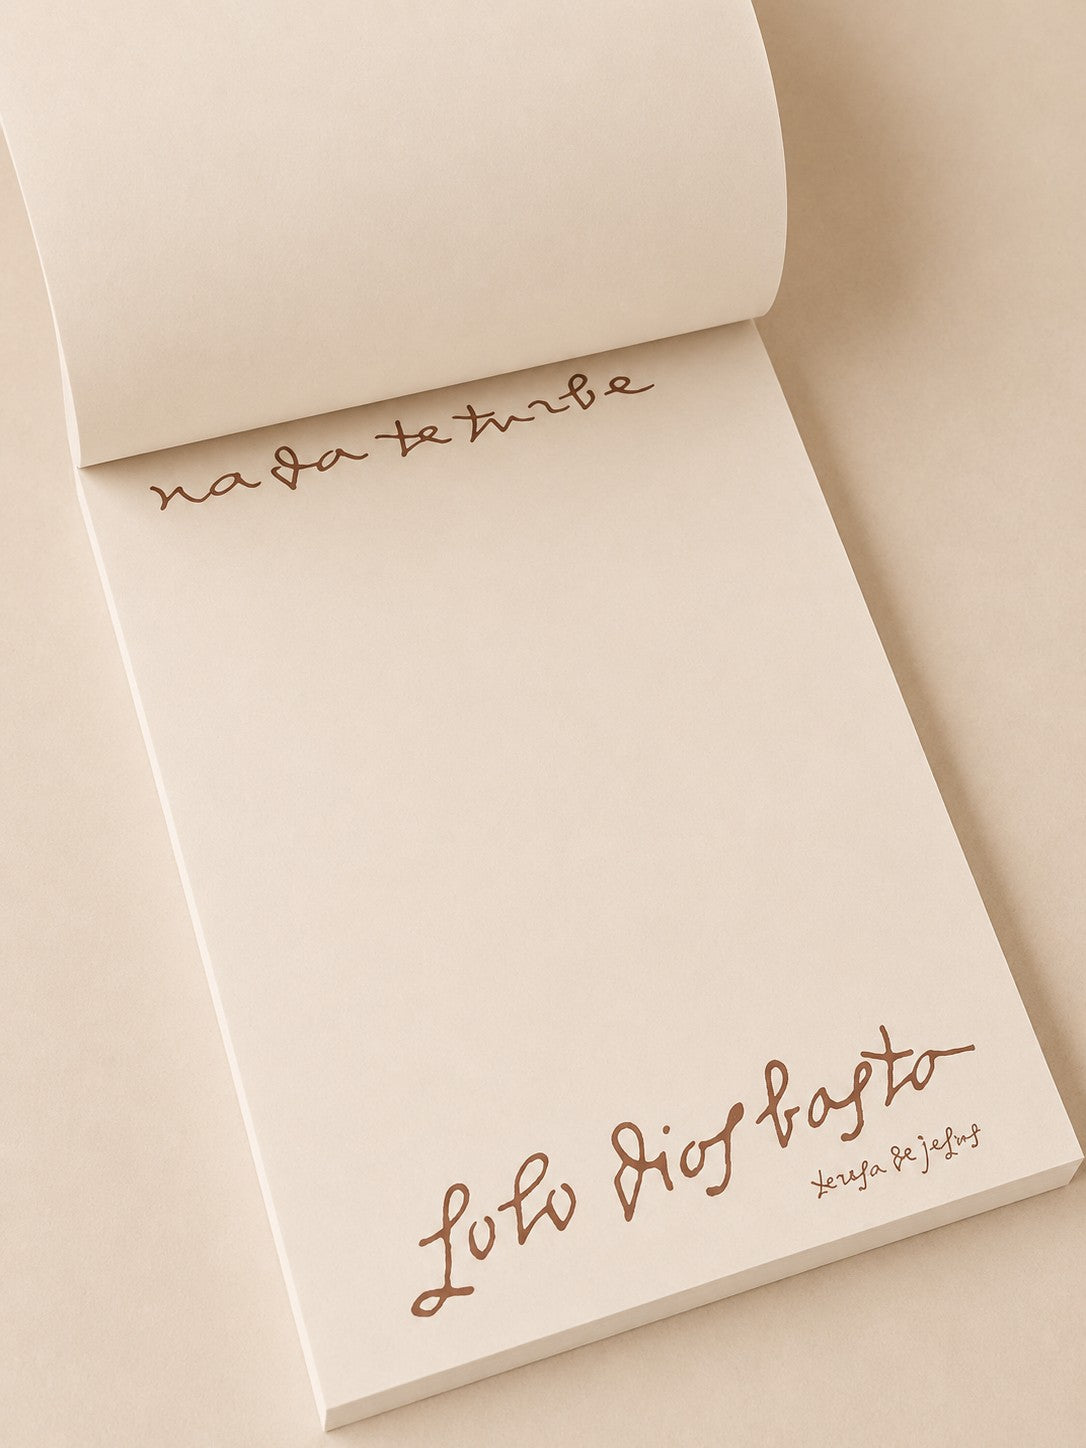 nada te turbe
solo dios basta
teresa de jesus